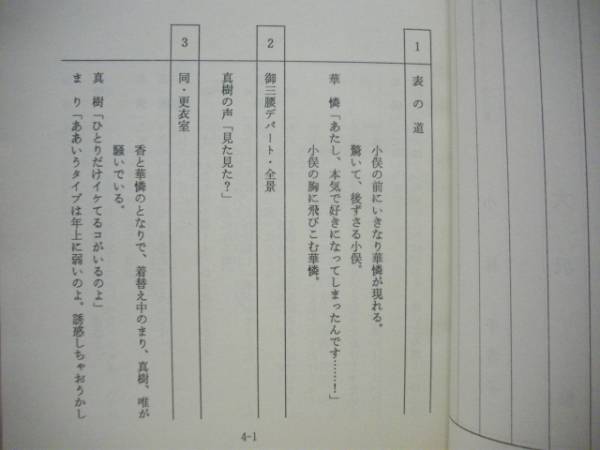 1 表の道
小俣の前にいきなり華憐が現れる。
驚いて、後ずさる小俣。
華　憐「あたし、本気で好きになってしまったんです……！」
小俣の胸に飛びこむ華憐。
2 御三腰デパート・全景
真樹の声「見た見た？」
3 同・更衣室
香と華憐のとなりで、着替え中のまり、真樹、唯が
騒いでいる。
真　樹「ひとりだけイケてるコがいるのよ」
ま　り「ああいうタイプは年上に弱いのよ。誘惑しちゃおうかし
4-1